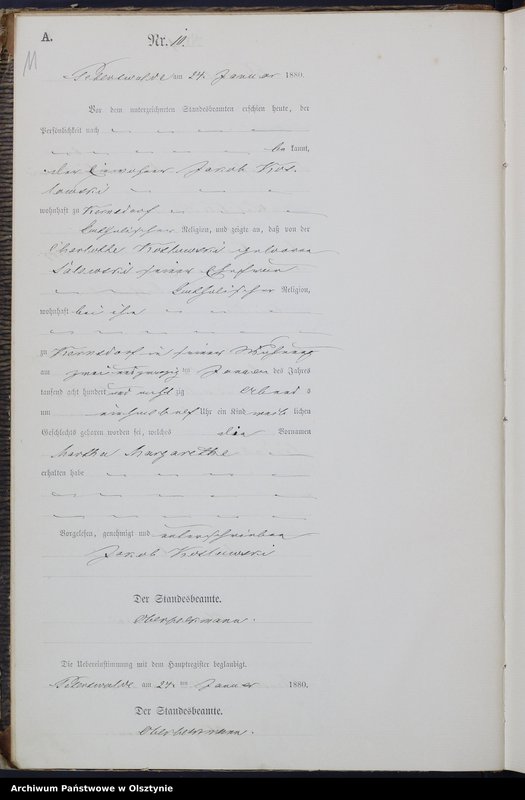 A.
Nr. 11.
11
am 24. Januar 1880.
Vor dem unterzeichneten Standesbeamten erschien heute, der
Persönlichkeit nach
be kannt,
der Einwohner Jacob Kos-
lowski
wohnhaft zu Kernsdorf
katholischer Religion, und zeigte an, daß von der
Charlotte Koslowski geborene
seiner Ehefrau
katholischer Religion,
wohnhaft bei ihm
zu Kernsdorf in seiner Wohnung
am zwei und zwanzig ten Januar des Jahres
tausend acht hundert und acht zig Abend s
um Uhr ein Kind weib lichen
Geschlechts geboren worden sei, welches die Vornamen
Martha Margarethe
erhalten habe
Vorgelesen, genehmigt und unterschrieben
Jacob Koslowski
Der Standesbeamte.
Die Uebereinstimmung mit dem Hauptregister beglaubigt.
am 24. ten Januar 1880.
Der Standesbeamte.
Archiwum Państwowe w Olsztynie